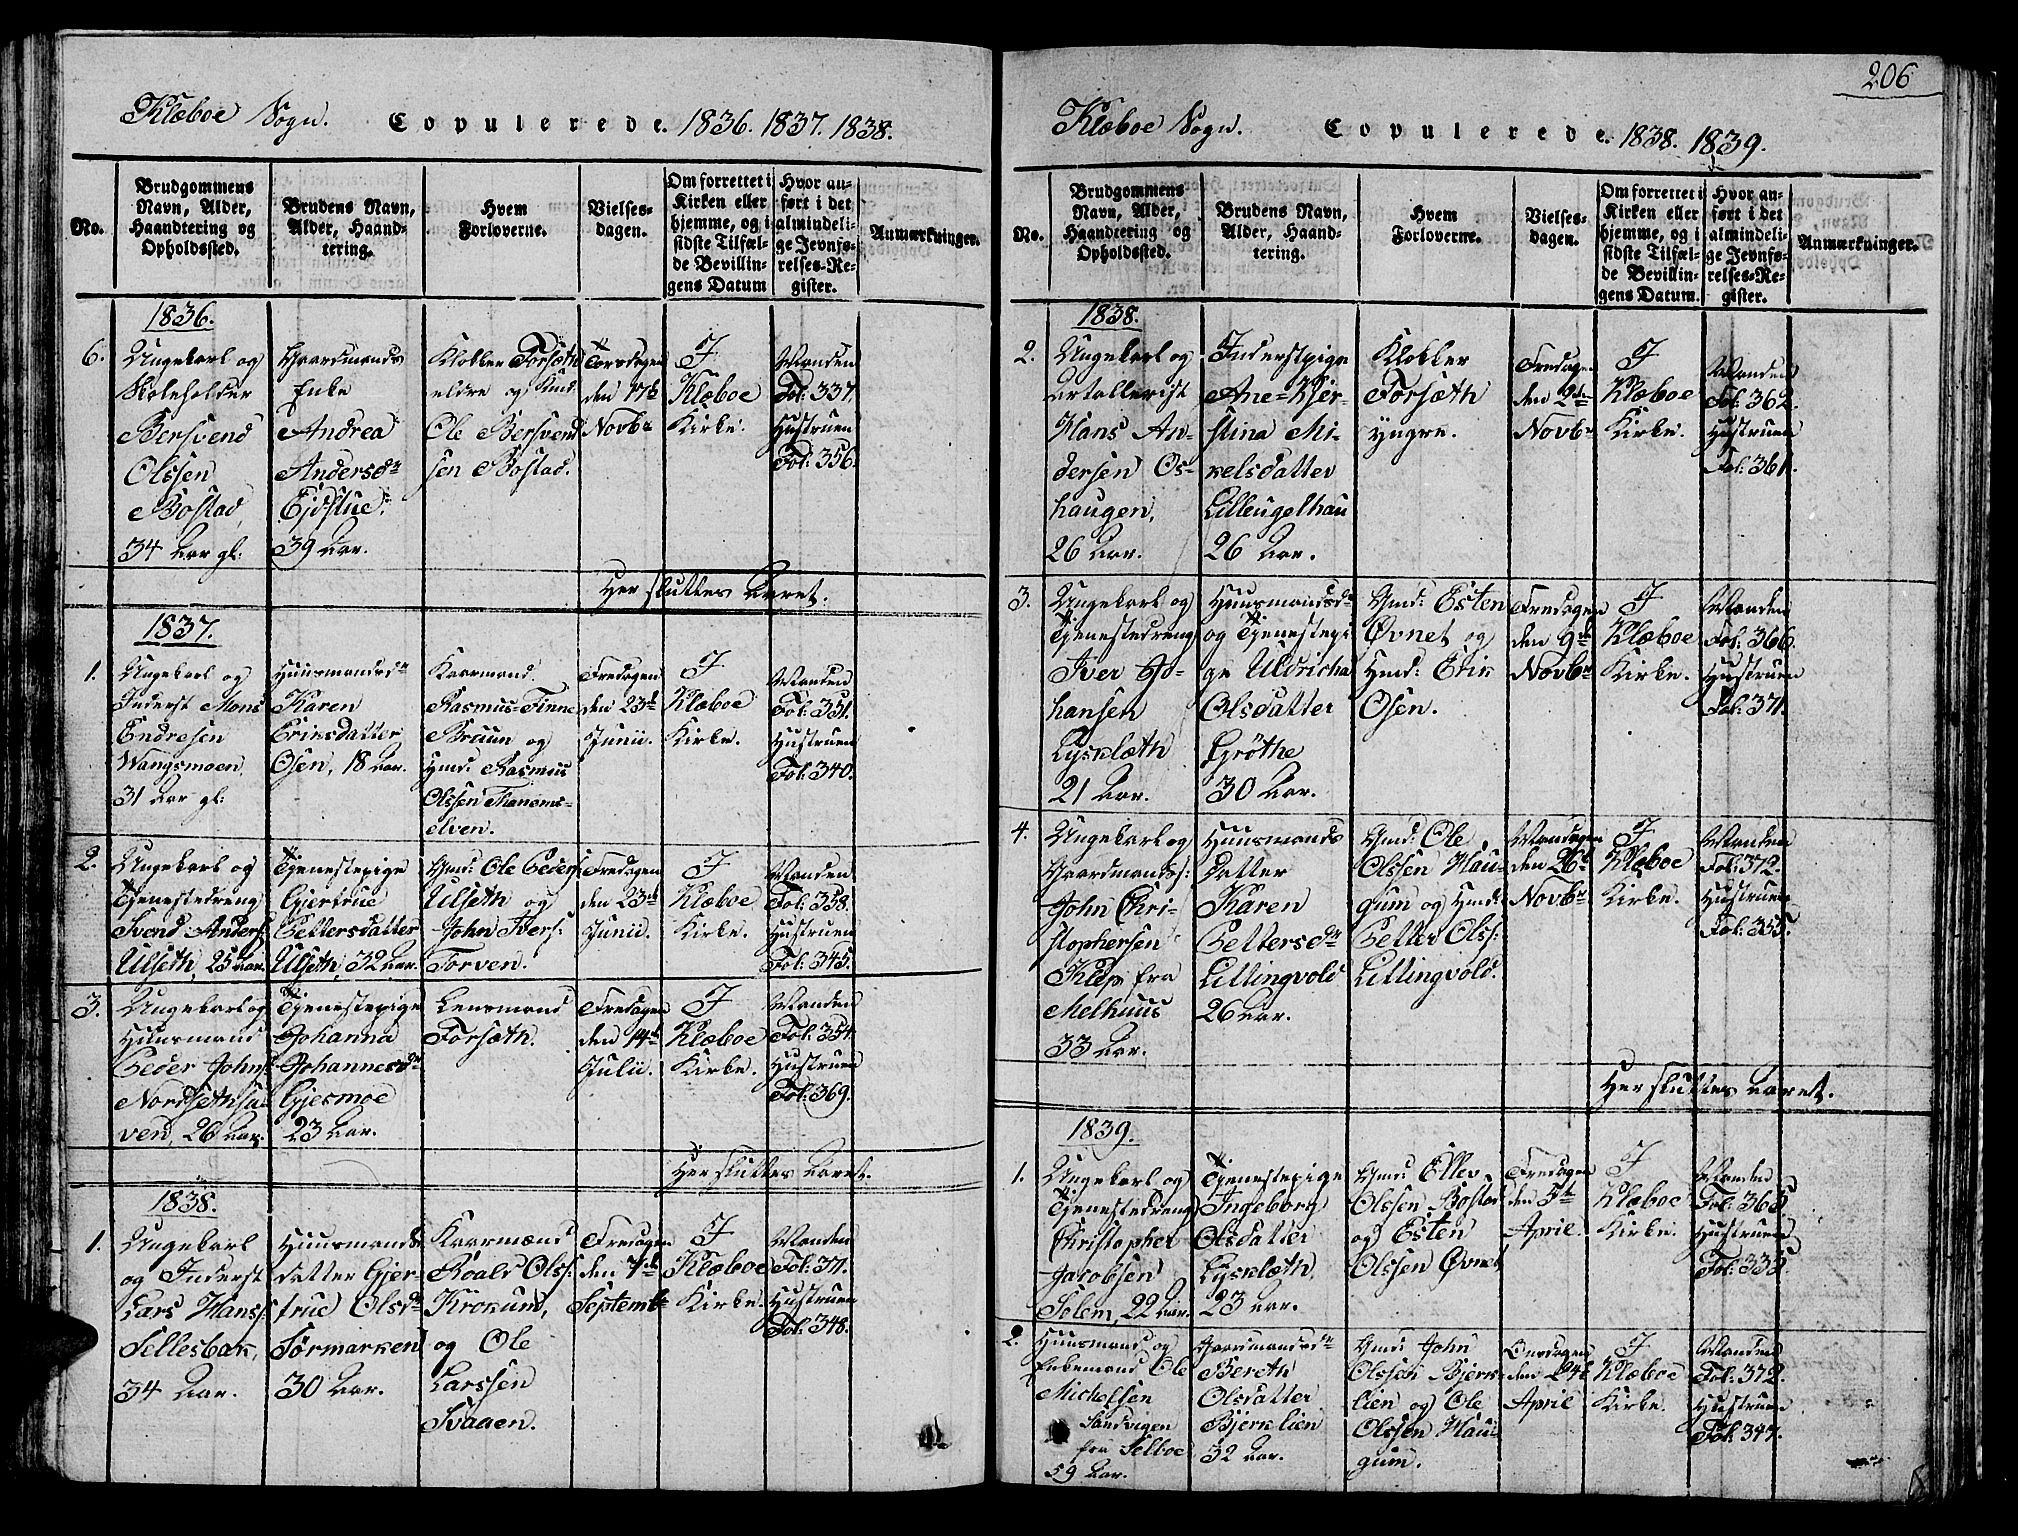 Klæboe Sogn. Copulerede. 1836. 1837. 1838.
No.
Brudgommens Navn, Alder, Haandtering og Opholdssted.
Brudens Navn, Alder, Haandtering.
Hvem Forloverne.
Vielsesdagen.
Om forrettet i Kirken eller hjemme, og i sidste Tilfælde Bevillingens Datum
Hvor anført i det almindelige Jevnførelses-Register.
Anmærkninger.
1836.
6.
Ungekarl og
Skoleholder
Bersvend
Olssen
Bostad
34 Aar gl:
Gaardmands
Enke
Andrea
Andersdr
Ejdstue.
39 Aar.
Klokker Forsæth
eldre og Gmd.
Ole Bersvend
sen Bostad.
Torsdagen
den 17de
Novbr
I
Klæboe
Kirke.
Manden
Fol: 337.
Hustruen
Fol: 356.
Her sluttes Aaret.
1837.
1.
Ungekarl og
Inderst Mons
Endresen
Wangsmoen,
31 Aar gl:
Huusmandsdr
Karen
Ericsdatter
Osen, 18 Aar.
Kaarmand.
Rasmus Finne
Bruun og
Hmd: Rasmus
Olssen Thanems-
elven.
Fredagen
den 23de
Junii.
I
Klæboe
Kirke.
Manden
Fol: 351.
Hustruen
Fol: 340.
2.
Ungekarl og
Tjenestedreng
Svend Anders:
Ulseth, 25 Aar.
Tjenestepige
Gjertrue
Pettersdatter
Ulseth, 32 Aar.
Gmd: Ole Peders:
Ulseth og
John Ivers:
Torven.
Fredagen
den 23de
Junii.
I
Klæboe
Kirke.
Manden
Fol: 358.
Hustruen
Fol: 345.
3.
Ungekarl og
Huusmand
Peder Johns:
Nordsethsa-
ven, 26 Aar.
Tjenestepige
Johanna
Johannesdr
Gjesmoe
23 Aar.
Lensmand
Forsæth.
Fredagen
den 14de
Julii.
I
Klæboe
Kirke.
Manden
Fol: 354.
Hustruen
Fol: 369.
Her sluttes Aaret.
1838.
1.
Ungekarl
og Inderst
Lars Hans:
Sellesbak,
34 Aar.
Huusmands
datter Gjer-
true Olsdr
Sørmarken
30 Aar.
Kaarmænd
Roald Olss:
Krokum,
og Ole
Larssen
Svaaen.
Fredagen
den 7de
Septembr
I
Klæboe
Kirke.
Manden
Fol: 371.
Hustruen
Fol: 348.
206
Klæboe Sogn. Copulerede. 1838. 1839.
No.
Brudgommens Navn, Alder, Haandtering og Opholdssted.
Brudens Navn, Alder, Haandtering.
Hvem Forloverne.
Vielsesdagen.
Om forrettet i Kirken eller hjemme, og i sidste Tilfælde Bevillingens Datum.
Hvor anført i det almindelige Jevnførelses-Register.
Anmærkninger.
1838.
2.
Ungekarl og
Artollerist
Hans An-
dersen Os-
haugen,
26 Aar.
Inderstpige
Ane-Kjer-
stina Mi-
kelsdatter
Lilleugelhau
26 Aar.
Klokker
Forsæth
yngre.
Fredagen
den 2den
Novbr
I
Klæboe
Kirke.
Manden
Fol: 362.
Hustruen
Fol: 361.
3.
Ungekarl og
Tjenestedreng
Iver Jo-
hansen
Lysklæth
21 Aar.
Huusmandsdr
og Tjenestepi
ge Uldricha
Olsdatter
Grøthe
30 Aar.
Gmd: Esten
Øvnet og
Hmd: Erik
Osen.
Fredagen
den 9de
Novbr
I
Klæboe
Kirke.
Manden
Fol: 366.
Hustruen
Fol: 371.
4.
Ungekarl og
Gaardmands:
John Chri-
stophersen
Klep fra
Melhuus
33 Aar.
Huusmands
Datter
Karen
Pettersdr
Lillingvold
26 Aar.
Gmd: Ole
Olssen Hau-
gum og Hmd:
Petter Olss:
Lillingvold.
Mandagen
den 26de
Novbr
I
Klæboe
Kirke.
Manden
Fol: 372.
Hustruen
Fol: 355.
Her sluttes Aaret.
1839.
1.
Ungekarl og
Tjenestedreng
Christopher
Jacobsen
Solem, 22 Aar.
Tjenestepige
Ingeborg
Olsdatter
Lysklæth,
23 Aar.
Gmd: Ellev
Olssen Bostad
og Esten
Olssen Øvnet
Fredagen
den 5te
April.
I
Klæboe
Kirke.
Manden
Fol: 365
Hustruen
Fol: 335
2.
Huusmand og
Enkemand Ole
Michelsen
Sandvigen
fra Selboe
59 Aar.
Gaardmandsdr
Bereth
Olsdatter
Bjerklien
32 Aar.
Gmd: John
Olssen Bjerk-
lien og Ole
Olssen Hau-
gum.
Onsdagen
den 24de
April
I
Klæboe
Kirke.
Manden
Fol: 372.
Hustruen
Fol: 347.